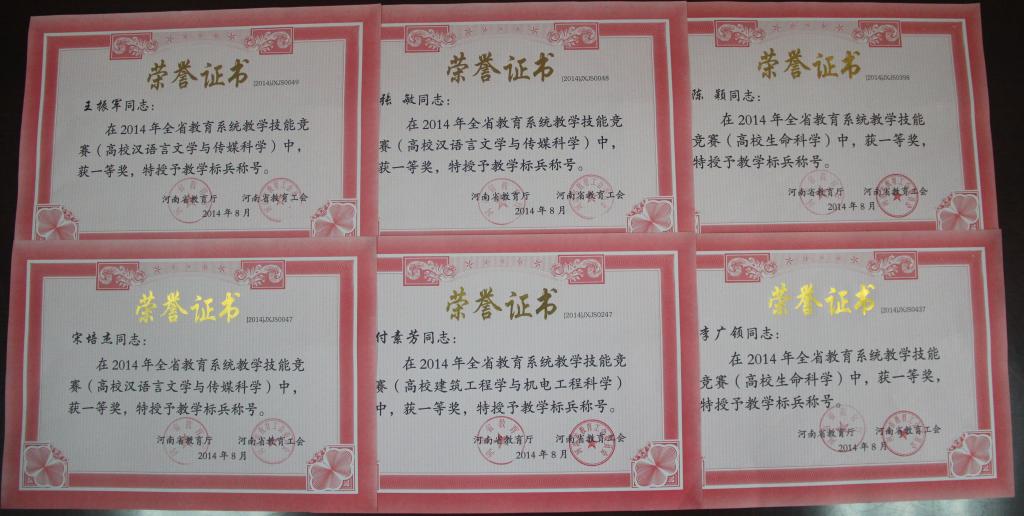 荣誉证书
[2014]JXJS0049
王振军同志：
在2014年全省教育系统教学技能竞
赛（高校汉语言文学与传媒科学）中，
获一等奖，特授予教学标兵称号。
河南省教育厅 河南省教育工会
2014年8月
荣誉证书
[2014]JXJS0048
张 敏同志：
在2014年全省教育系统教学技能竞
赛（高校汉语言文学与传媒科学）中，
获一等奖，特授予教学标兵称号。
河南省教育厅 河南省教育工会
2014年8月
荣誉证书
[2014]JXJS0398
陈 颖同志：
在2014年全省教育系统教学技能
竞赛（高校生命科学）中，获一等奖，
特授予教学标兵称号。
河南省教育厅 河南省教育工会
2014年8月
荣誉证书
[2014]JXJS0047
宋培杰同志：
在2014年全省教育系统教学技能竞
赛（高校汉语言文学与传媒科学）中，
获一等奖，特授予教学标兵称号。
河南省教育厅 河南省教育工会
2014年8月
荣誉证书
[2014]JXJS0247
付素芳同志：
在2014年全省教育系统教学技能竞
赛（高校建筑工程学与机电工程科学）
中，获一等奖，特授予教学标兵称号。
河南省教育厅 河南省教育工会
2014年8月
荣誉证书
[2014]JXJS0437
李广领同志：
在2014年全省教育系统教学技能
竞赛（高校生命科学）中，获一等奖，
特授予教学标兵称号。
河南省教育厅 河南省教育工会
2014年8月